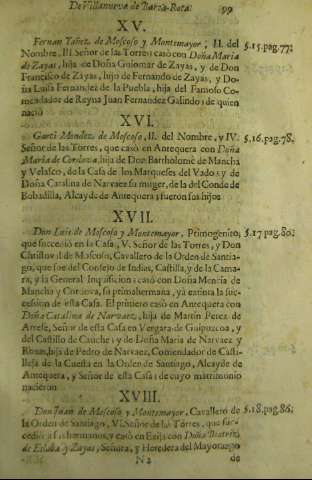 De Villanueva de Barca-Rota. 99
XV.
Fernan Yañez de Moscoso y Montemayor, II. del §.15.pag.77.
Nombre, III. Señor de las Torres: casò con Doña Maria
de Zayas, hija de Doña Guiomar de Zayas, y de Don
Francisco de Zayas, hijo de Fernando de Zayas, y Do-
ña Luisa Fernandez de la Puebla, hija del Famoso Co-
mendador de Reyna Juan Fernandez Galindo; de quien
naciò
XVI.
Garci Mendez de Moscoso, II. del Nombre, y IV. §.16.pag.78.
Señor de las Torres, que casò en Antequera con Doña
Maria de Cordova, hija de Don Bartholomè de Mancha
y Velasco, de la Casa de los Marqueses del Vado; y de
Doña Catalina de Narvaez su muger, de la del Conde de
Bobadilla, Alcayde de Antequera; fueron sus hijos
XVII.
Don Luis de Moscoso y Montemayor, Primogenito; §.17.pag.80.
que succediò en la Casa, V. Señor de las Torres, y Don
Christoval de Moscoso, Cavallero de la Orden de Santia-
go, que fue del Consejo de Indias, Castilla, y de la Cama-
ra, y la General Inquisicion: casò con Doña Mencia de
Mancha y Cordova, su primahermana, yà extinta la suc-
cession de esta Casa. El primero casò en Antequera con
Doña Catalina de Narvaez, hija de Martin Perez de
Arrese, Señor de esta Casa en Vergara de Guipuzcoa, y
del Castillo de Cauche; y de Doña Maria de Narvaez y
Rojas, hija de Pedro de Narvaez, Comendador de Casti-
lleja de la Cuesta en la Orden de Santiago, Alcayde de
Antequera, y Señor de esta Casa; de cuyo matrimonio
nacieron
XVIII.
Don Juan de Moscoso y Montemayor, Cavallero de §.18.pag.86.
la Orden de Santiago, VI. Señor de las Torres, que suc-
cediò a su hermano, y casò en Ezija con Doña Beatriz
de Eslaba y Zayas, Señora, y Heredera del Mayorazgo
N 2 de